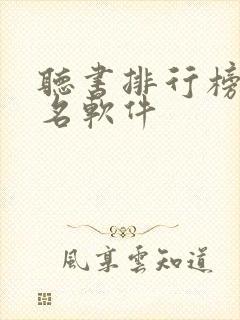 聽書排行榜
名軟件
風享雲知道